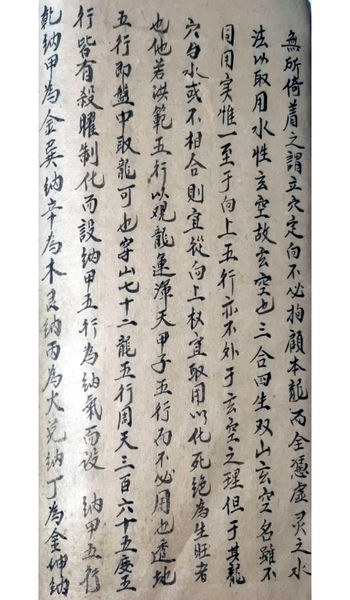 無所倚着之謂立穴定向不必拘顧本龍而全憑虛灵之水
法以取用水性玄空故玄空也三合四生双山玄空名雖不
同用实惟一至于向上五行亦不外于玄空之理但于其龍
穴与水或不相合則宜從向上权宜取用以化死絶為生旺者
也他若洪範五行以观龍運渾天甲子五行而不必用也透地
五行即盤中取龍可也穿山七十二龍五行周天三百六十五度五
行皆有殺曜制化而設納甲五行為納氣而設　納甲五行
乾納甲為金巽納辛為木艮納丙為火兌納丁為金坤納